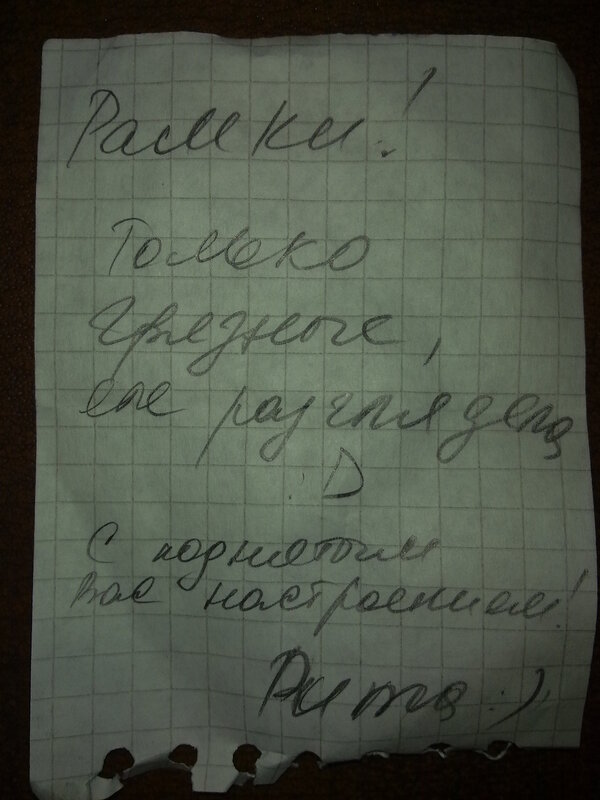 Рамки!
Только
грязные,
не разглядела
:D
С поднятым
Вас настроением!
Рита :)